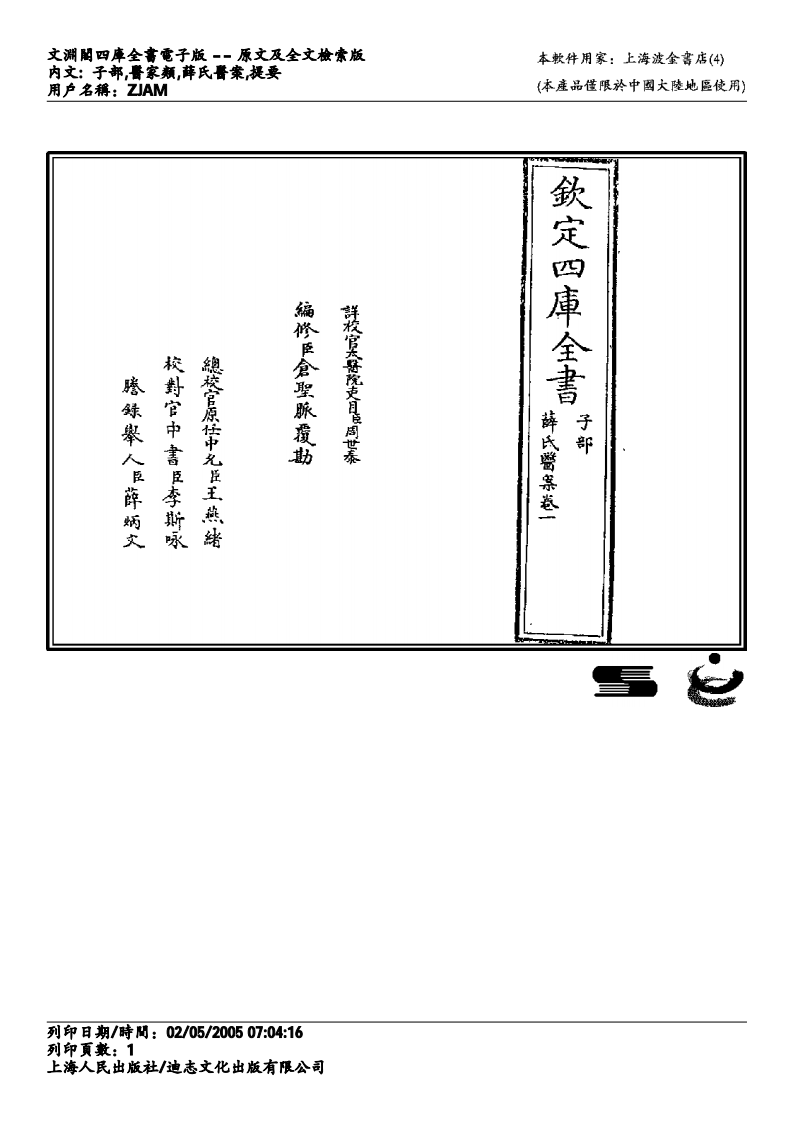 文淵閣四庫全書電子版 -- 原文及全文檢索版
內文: 子部,醫家類,薛氏醫案,提要
用戶名稱: ZJAM
本軟件用家: 上海波金書店(4)
(本產品僅限於中國大陸地區使用)
欽定四庫全書
子部
薛氏醫案卷一
詳校官太醫院吏目臣周世泰
編修臣倉聖脈覆勘
總校官原任中允臣王燕緒
校對官中書臣李斯咏
謄錄舉人臣薛炳文
列印日期/時間: 02/05/2005 07:04:16
列印頁數: 1
上海人民出版社/迪志文化出版有限公司